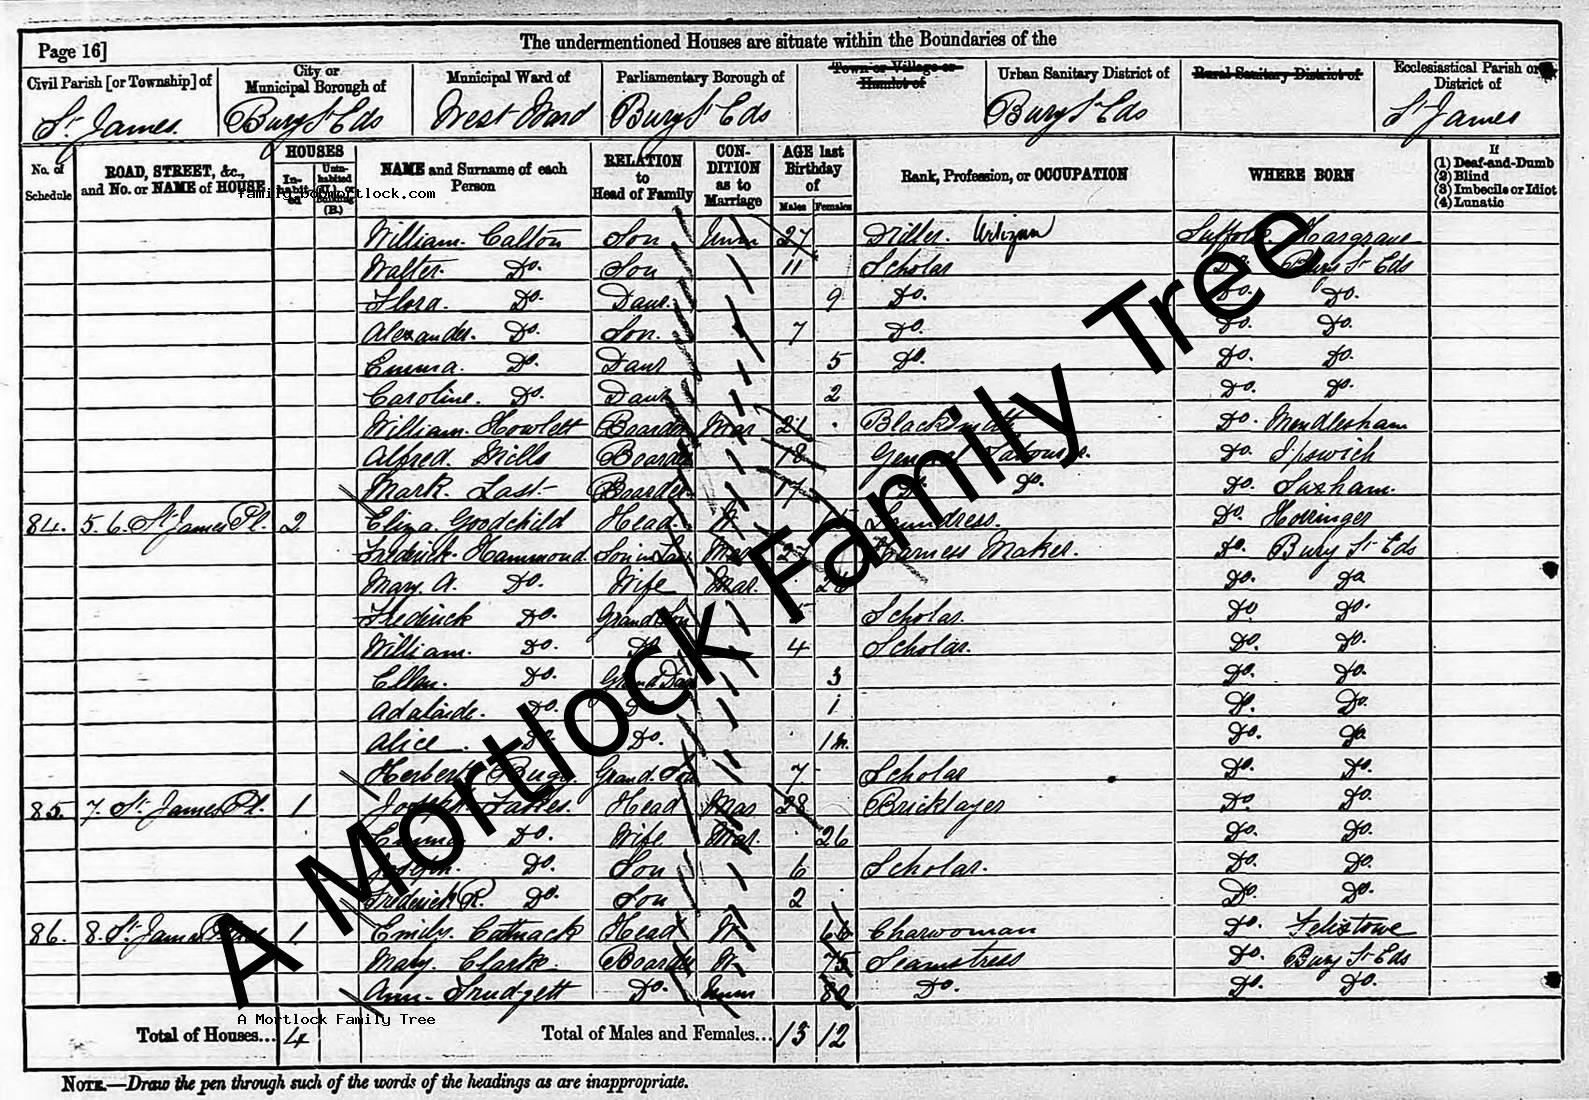 The undermentioned Houses are situate within the Boundaries of the
Page 16]
Civil Parish [or Township] of
St James.
City or Municipal Borough of
Bury St Eds
Municipal Ward of
West Ward
Parliamentary Borough of
Bury St Eds
Town or Village or Hamlet of
Urban Sanitary District of
Bury St Eds
Rural Sanitary District of
Ecclesiastical Parish or District of
St James
No. of Schedule
ROAD, STREET, &c., and No. or NAME of HOUSE
HOUSES
In-habit-ed
Unin-habited (U.), or Building (B.)
NAME and Surname of each Person
RELATION to Head of Family
CON-DITION as to Marriage
AGE last Birthday of
Males Females
Rank, Profession, or OCCUPATION
WHERE BORN
If
(1) Deaf-and-Dumb
(2) Blind
(3) Imbecile or Idiot
(4) Lunatic
family.bobmortlock.com
William. Calton Son Unm 27 Driller. Suffolk. Hargrave
Walter. Do. Son 11 Scholar Do. Bury St Eds
Flora. Do. Daur. 9 Do. Do. Do.
Alexander. Do. Son. 7 Do. Do. Do.
Emma. Do. Daur 5 Do. Do. Do.
Caroline. Do. Daur 2 Do. Do.
William. Howlett Boarder Mar 21 Blacksmith Do. Mendlesham
Alfred. Mills Boarder 18 General Labourer. Do. Ipswich
Mark. Last Boarder 17 Do. Do. Do. Saxham.
84. 5.6. St James Pl. 2 Eliza. Goodchild Head. W. Laundress. Do. Horringer
Frederick. Hammond. Son in Law Mar Harness Maker. Do. Bury St Eds
Mary. A. Do. Wife Mar. Do. Do
Frederick Do. Grand Son Scholar. Do. Do.
William. Do. Do. 4 Scholar. Do. Do.
Ellen. Do. Grand Daur 3 Do. Do.
Adalaide. Do. Do. 1 Do. Do.
Alice. Do. Do. 1m. Do. Do
Herbert Grand. Son 7 Scholar Do. Do.
85. 7. St James Pl. 1 Joseph. Head Mar 28 Bricklayer Do. Do.
Emma Do. Wife Mar. 26 Do. Do.
Joseph. Do. Son 6 Scholar. Do. Do.
Frederick R. Do. Son 2 Do. Do.
86. 8. St James 1 Emily. Head W Charwoman Do. Felixtowe
Mary. Clarke. Boarder W. 75 Seamstress Do. Bury St Eds
Ann. Trudgett Do. Unm Do. Do. Do.
A Mortlock Family Tree
A Mortlock Family Tree
Total of Houses... 4 Total of Males and Females... 13 12
NOTE.—Draw the pen through such of the words of the headings as are inappropriate.